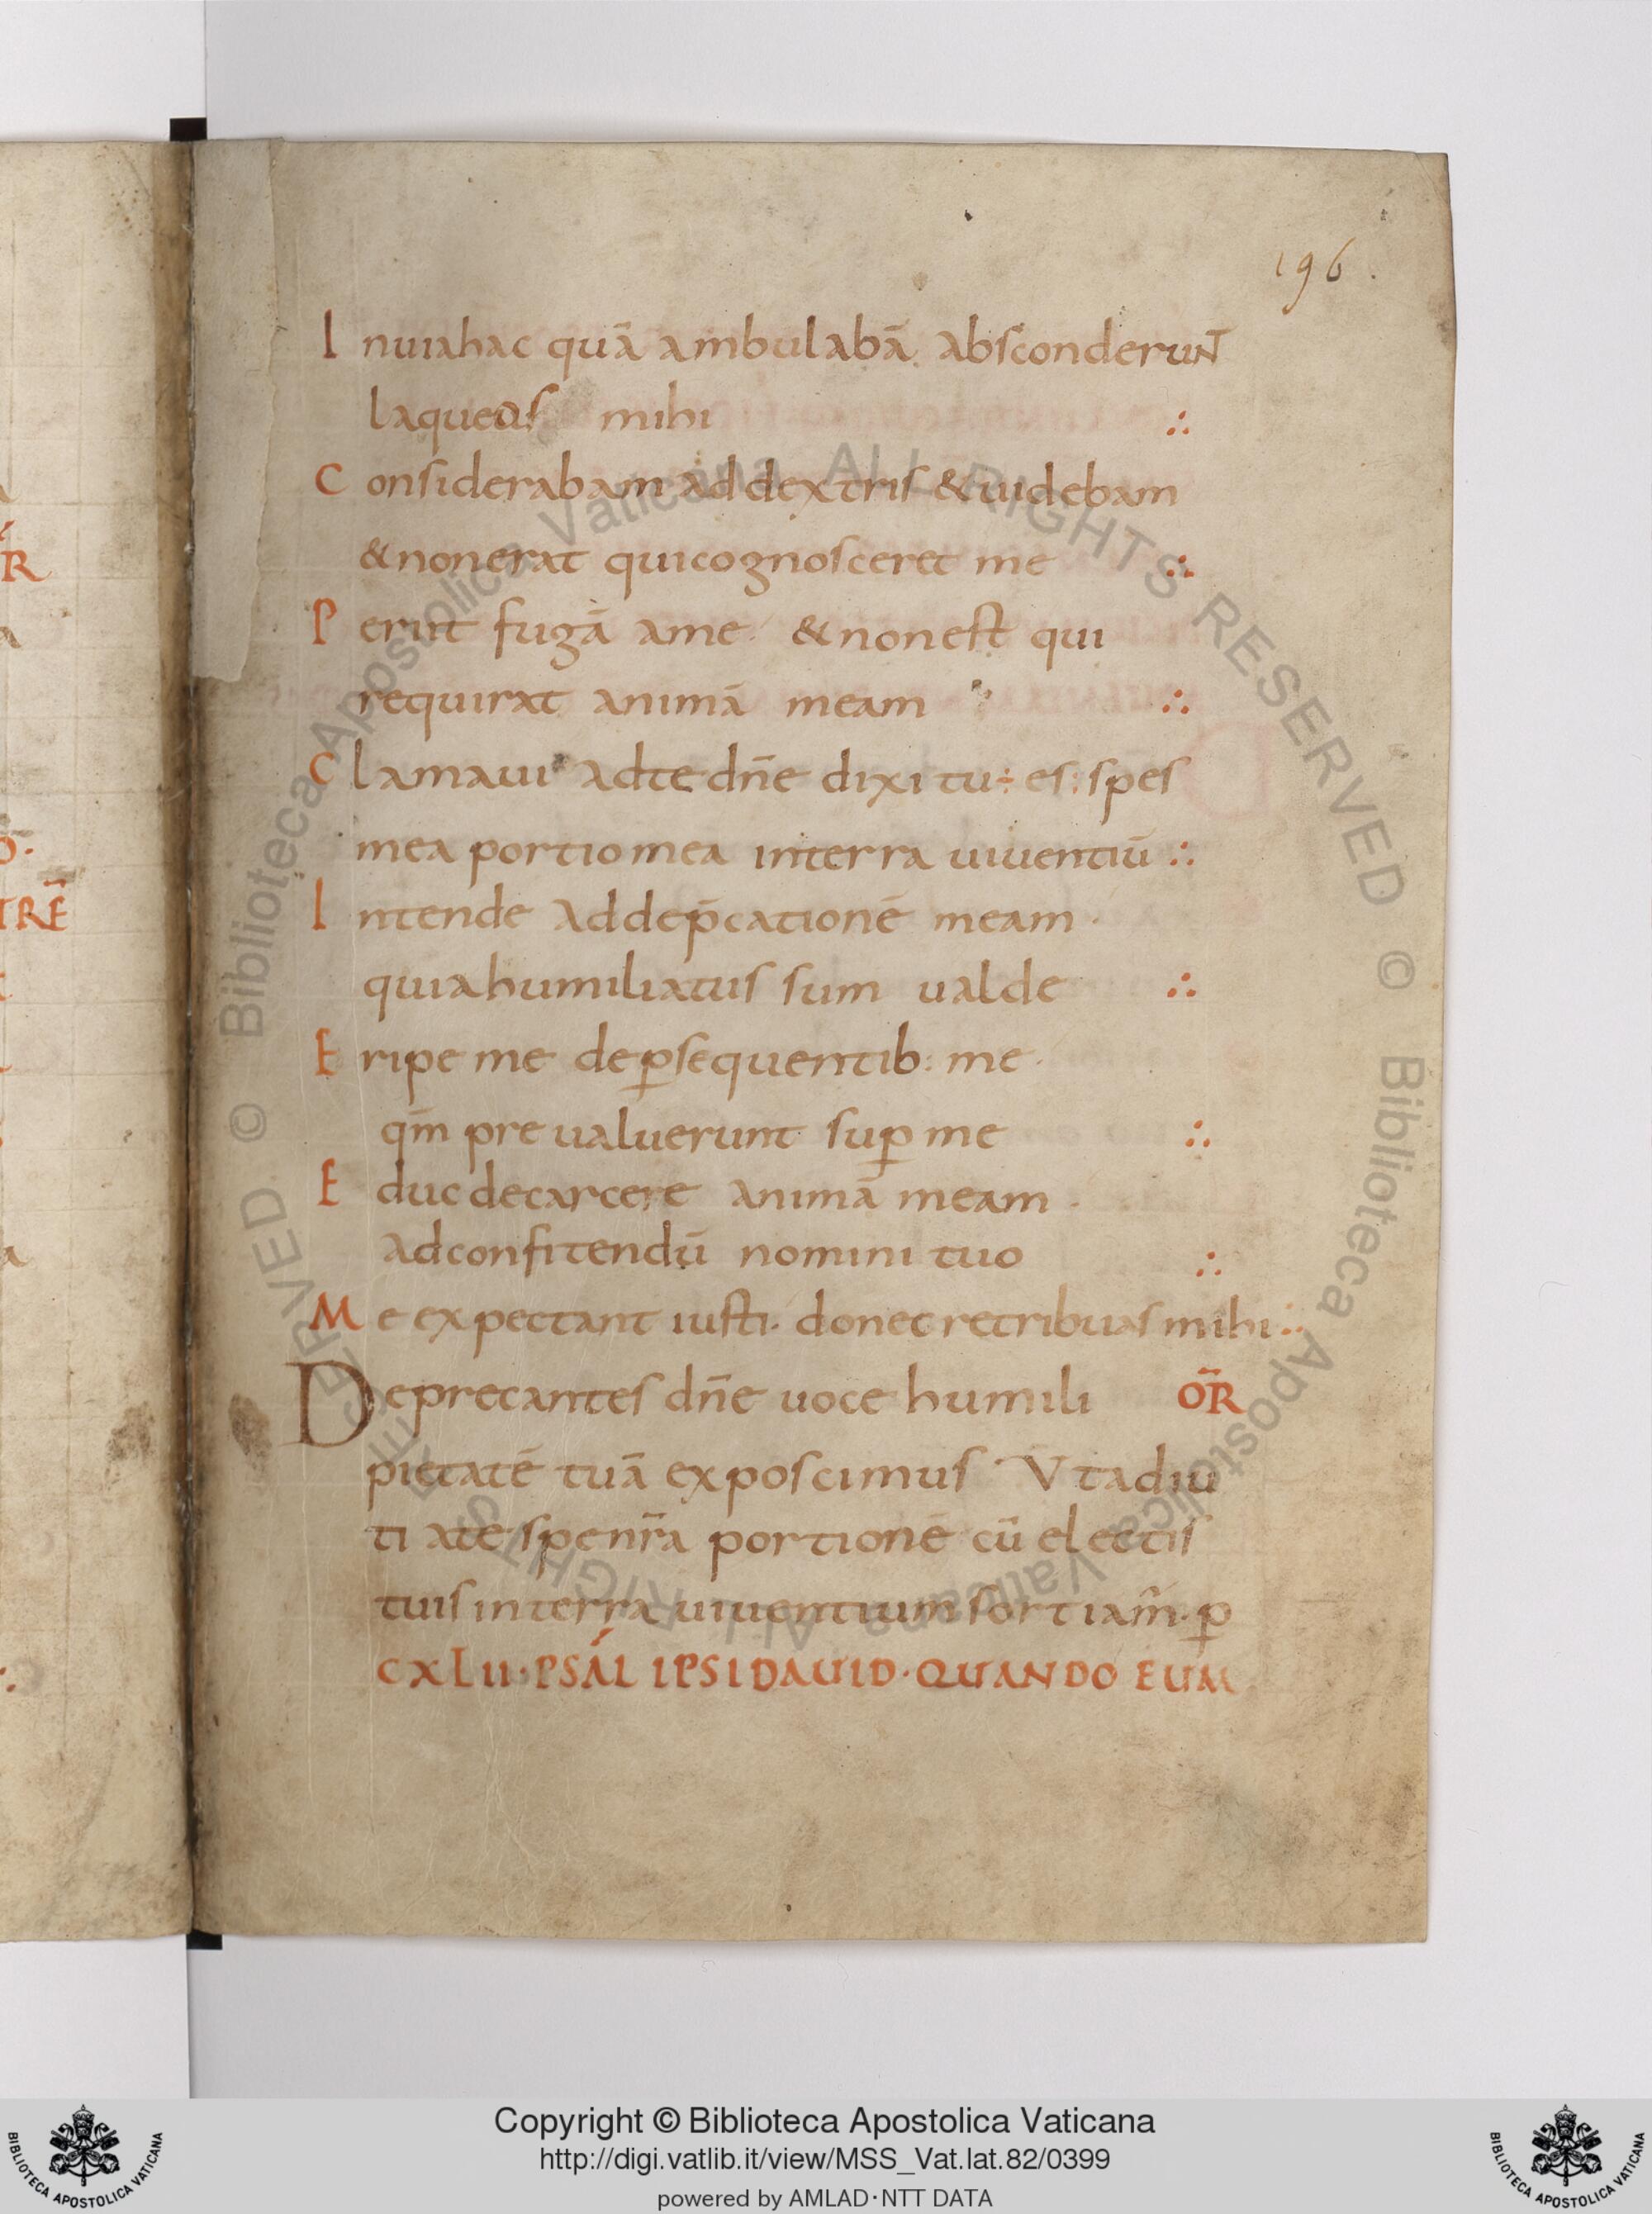 196.
I nuiahac quā ambulabā absconderunt
laqueos mihi ∴
C onsiderabam ad dextris & uidebam
& nonerat quicognosceret me ∴
P eriit fugā ame & nonest qui
requirat animā meam ∴
C lamaui adte dn̄e dixi tu ÷ es: spes
mea portio mea interra uiuentiū ∴
I ntende addep̄cationē meam ·
quiahumiliatus sum ualde ∴
E ripe me deꝑsequentib: me ·
qm̄ preualuerunt suꝑ me ∴
E duc decarcere animā meam ·
adconfitendū nomini tuo ∴
M e expectant iusti · donec retribuas mihi ∴
Deprecantes dn̄e uoce humili OR̄
pietatē tuā exposcimus Vtadiu
ti ate spe nr̄a portionē cū electis
tuis interra uiuentium sortiam̄ · ꝑ
CXLII · PSAĹ IPSI DAUID · QUANDO EUM
R
TRĒ
© Biblioteca Apostolica Vaticana ALL RIGHTS RESERVED © Biblioteca Apostolica Vaticana ALL RIGHTS RESERVED
Copyright © Biblioteca Apostolica Vaticana
http://digi.vatlib.it/view/MSS_Vat.lat.82/0399
powered by AMLAD·NTT DATA
BIBLIOTECA APOSTOLICA VATICANA
BIBLIOTECA APOSTOLICA VATICANA